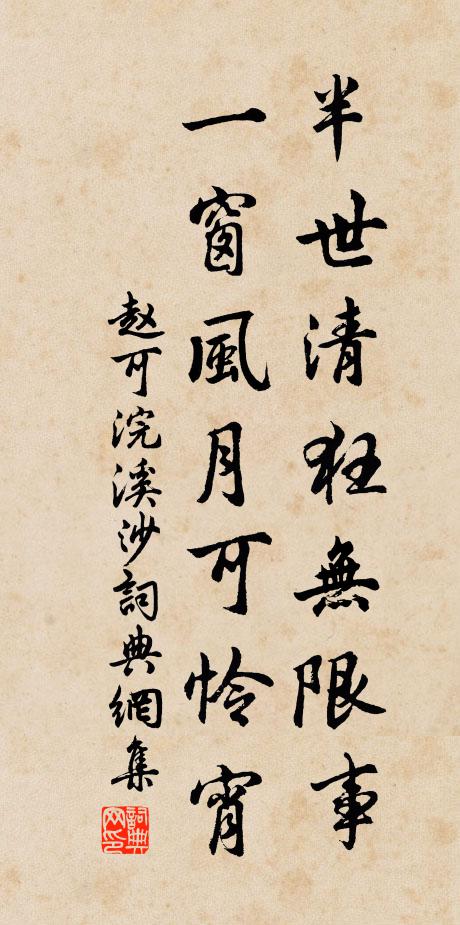 半世清狂無限事
一窗風月可憐宵
趙可浣溪沙詞典網集
詞典网印